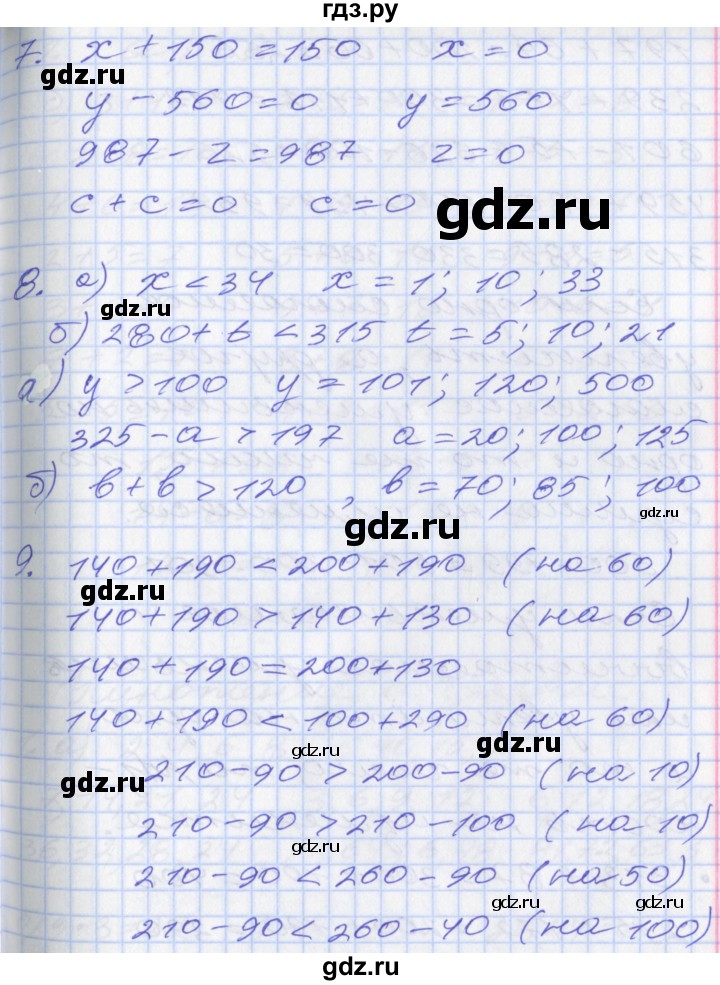 гдз.ру
7. x + 150 = 150 x = 0
gdz.ru
y - 560 = 0 y = 560
987 - z = 987 z = 0
c + c = 0 c = 0
gdz.ru
8. а) x < 34 x = 1; 10; 33
gdz.ru
б) 280 + t < 315 t = 5; 10; 21
а) y > 100 y = 101; 120; 500
325 - a > 197 a = 20; 100; 125
б) b + b > 120 , b = 70; 85; 100
gdz.ru
9. 140 + 190 < 200 + 190 (на 60)
gdz.ru
140 + 190 > 140 + 130 (на 60)
140 + 190 = 200 + 130
140 + 190 < 100 + 290 (на 60)
gdz.ru gdz.ru
210 - 90 > 200 - 90 (на 10)
gdz.ru
210 - 90 > 210 - 100 (на 10)
gdz.ru
210 - 90 < 260 - 90 (на 50)
gdz.ru
210 - 90 < 260 - 40 (на 100)
gdz.ru